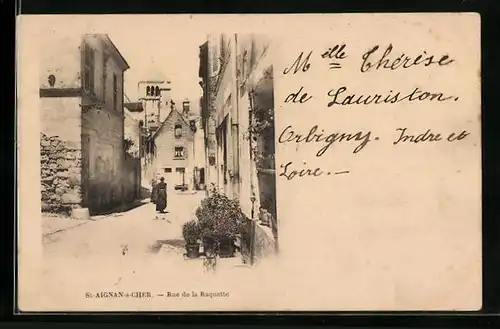 Mlle Thérèse
de Lauriston.
Orbigny. Indre et
Loire.—
St-AIGNAN-s-CHER. — Rue de la Raquette